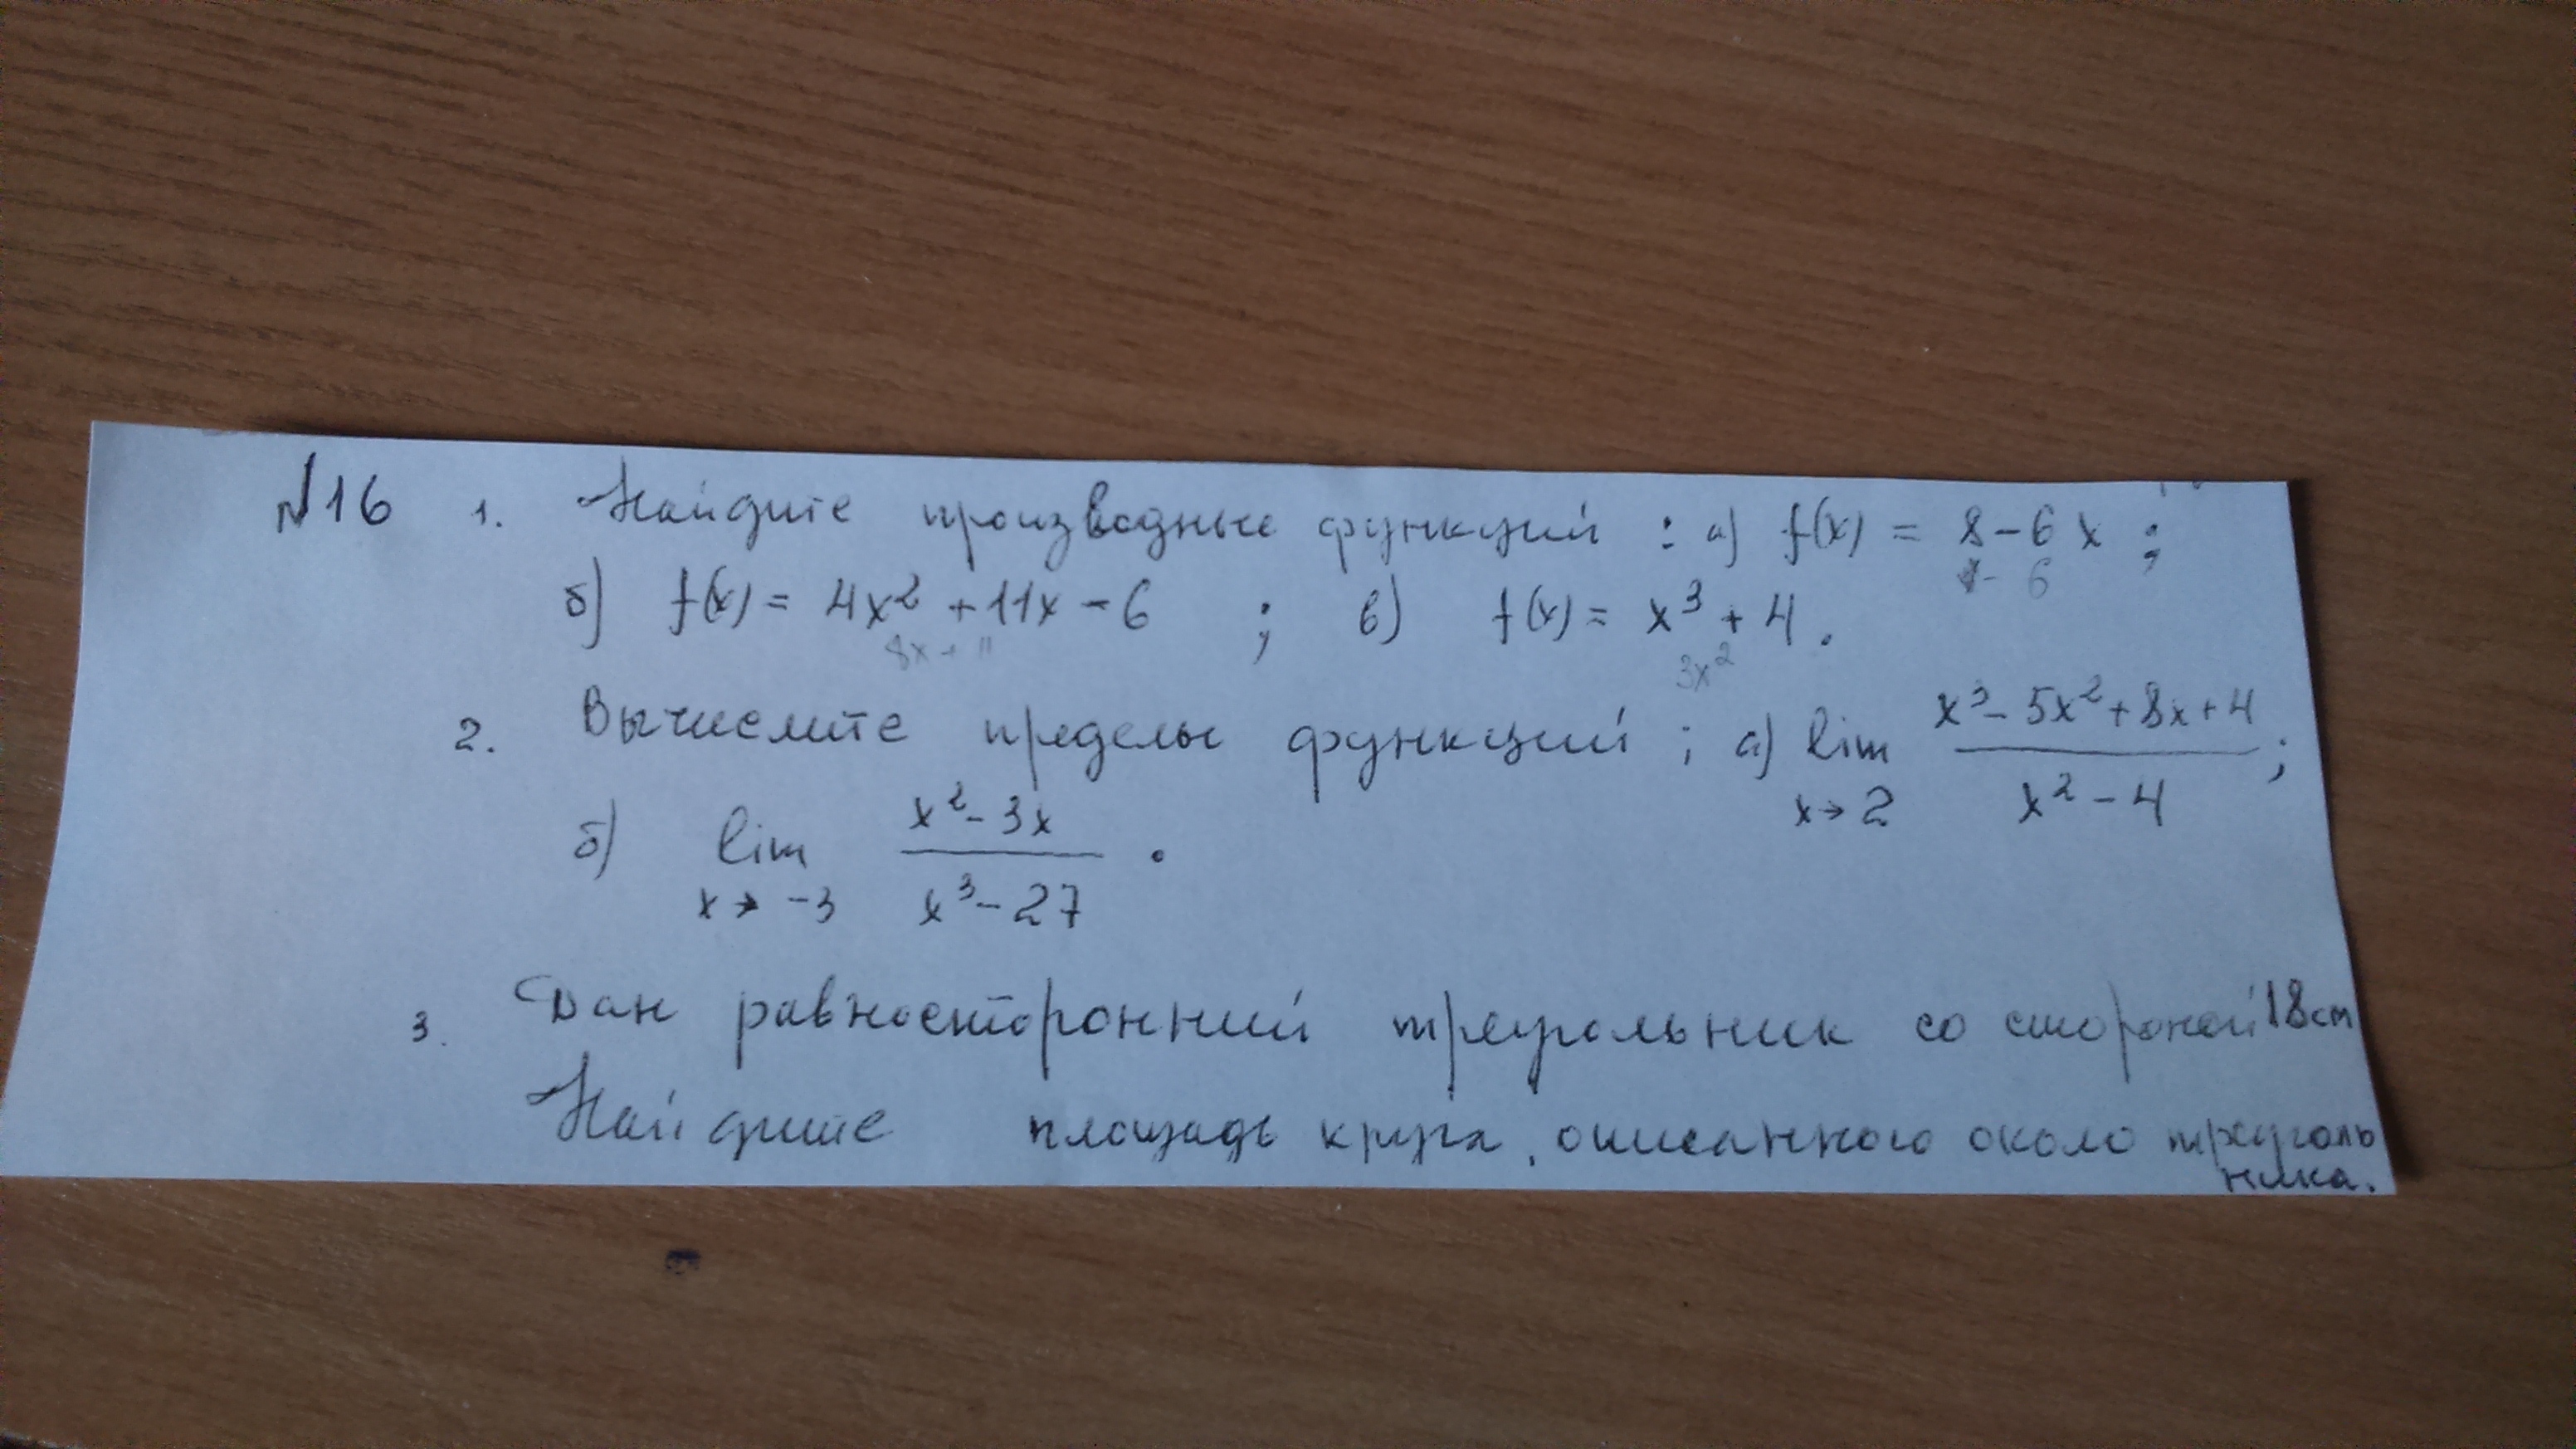 №16 1. Найдите производные функций : а) f(x) = 8 - 6x ;
- 6
б) f(x) = 4x² + 11x - 6 ; в) f(x) = x³ + 4.
8x + 11 3x²
2. Вычислите пределы функций ; а) lim x→2 (x³ - 5x² + 8x + 4)/(x² - 4) ;
б) lim x→ -3 (x² - 3x)/(x³ - 27) .
3. Дан равносторонний треугольник со стороной 18см
Найдите площадь круга, описанного около треуголь
ника.